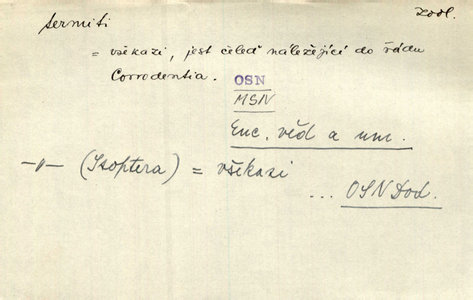 termiti
zool.
= všekazi, jest čeleď náležející do řádu
Corrodentia.
OSN
MSN
Enc. věd a um.
-"- (Isoptera) = všekazi
... OSN Dod.